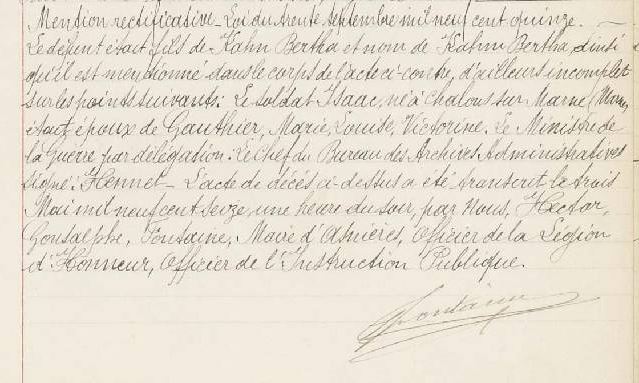 Mention rectificative - Loi du trente septembre mil neuf cent quinze. -
Le défunt était fils de Kahn Bertha et nom de Kahnn Bertha, ainsi
qu'il est mentionné dans le corps de l'acte ci-contre, d'ailleurs incomplet
sur les points suivants: Le soldat Isaac, né à Chalons sur Marne, Marne,
était époux de Gauthier, Marie, Louise, Victorine. Le Ministre de
la Guerre par délégation: Le chef du Bureau des Archives Administratives
signé: Hennet - L'acte de décès ci-dessus a été transcrit le trois
Mai mil neuf cent seize, une heure du soir, par Nous, Hector,
Gonsalphe, Fontaine, Maire d'Asnières, Officier de la Légion
d'Honneur, Officier de l'Instruction Publique.
Fontaine